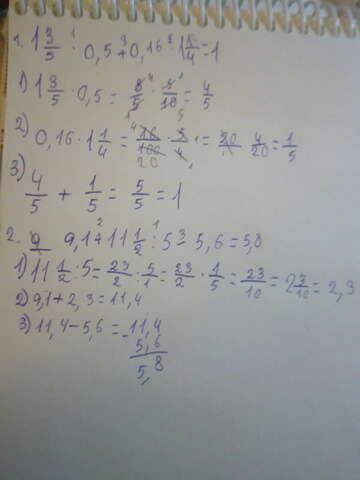 1. 1 3/5 · 0,5 + 0,16 · 1 1/4 = 1
1) 1 3/5 · 0,5 = 8/5 · 5/10 = 4/5
2) 0,16 · 1 1/4 = 16/100 · 5/4 = 4/20 = 1/5
3) 4/5 + 1/5 = 5/5 = 1
2. 9,1 + 11 1/2 : 5 - 5,6 = 5,8
1) 11 1/2 : 5 = 23/2 : 5/1 = 23/2 · 1/5 = 23/10 = 2 3/10 = 2,3
2) 9,1 + 2,3 = 11,4
3) 11,4 - 5,6 = 11,4
5,6
5,8